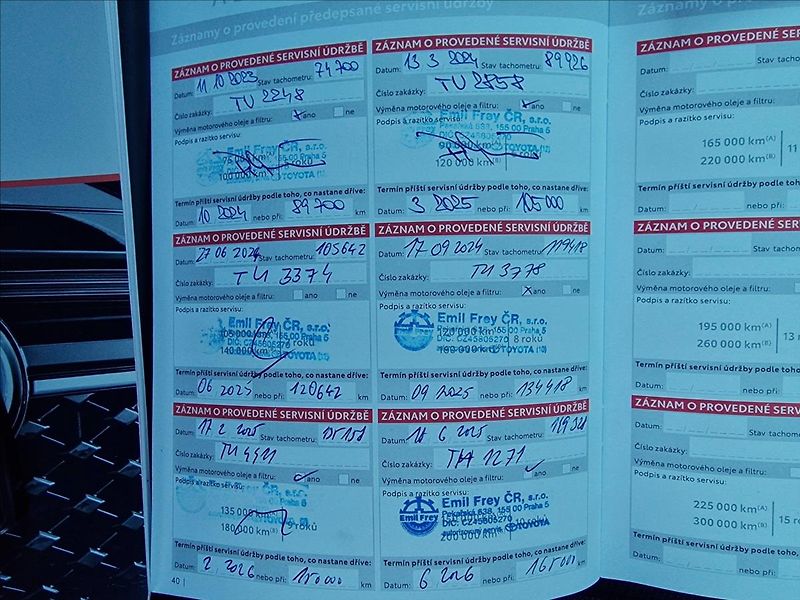 Záznamy o provedení předepsané servisní údržby
ZÁZNAM O PROVEDENÉ SERVISNÍ ÚDRŽBĚ
Datum: 11 10 2023 Stav tachometru: 74 700
Číslo zakázky: TU 2248
Výměna motorového oleje a filtru: ano ne
Podpis a razítko servisu:
Emil Frey ČR, s.r.o.
155 00 Praha 5
TOYOTA
Termín příští servisní údržby podle toho, co nastane dříve:
Datum: 10 2024 nebo při: 89 700 km
ZÁZNAM O PROVEDENÉ SERVISNÍ ÚDRŽBĚ
Datum: 13 3 2024 Stav tachometru: 89926
Číslo zakázky: TU 2858
Výměna motorového oleje a filtru: ano ne
Podpis a razítko servisu:
Emil Frey ČR, s.r.o.
Pekařská 638, 155 00 Praha 5
120 000 km(B) TOYOTA
Termín příští servisní údržby podle toho, co nastane dříve:
Datum: 3 2025 nebo při: 105 000 km
ZÁZNAM O PROVEDENÉ SERVISNÍ ÚDRŽBĚ
Datum: 27 06 2024 Stav tachometru: 105642
Číslo zakázky: TU 3374
Výměna motorového oleje a filtru: ano ne
Podpis a razítko servisu:
Emil Frey ČR, s.r.o.
155 00 Praha 5
DIČ: CZ45806270
140 000 TOYOTA
Termín příští servisní údržby podle toho, co nastane dříve:
Datum: 06 2025 nebo při: 120642 km
ZÁZNAM O PROVEDENÉ SERVISNÍ ÚDRŽBĚ
Datum: 17 09 2024 Stav tachometru: 119418
Číslo zakázky: TU 3778
Výměna motorového oleje a filtru: ano ne
Podpis a razítko servisu:
Emil Frey ČR, s.r.o.
155 00 Praha 5
DIČ: CZ45806270 8 roků
TOYOTA
Termín příští servisní údržby podle toho, co nastane dříve:
Datum: 09 2025 nebo při: 134418 km
ZÁZNAM O PROVEDENÉ SERVISNÍ ÚDRŽBĚ
Datum: 17 2 2025 Stav tachometru:
Číslo zakázky: TU 4911
Výměna motorového oleje a filtru: ano ne
Podpis a razítko servisu:
135 000 km
180 000 km(B) 9 roků
Termín příští servisní údržby podle toho, co nastane dříve:
Datum: 2 2026 nebo při: 150 000 km
ZÁZNAM O PROVEDENÉ SERVISNÍ ÚDRŽBĚ
Datum: 6 2025 Stav tachometru:
Číslo zakázky: 1271
Výměna motorového oleje a filtru: ano ne
Podpis a razítko servisu:
Emil Frey ČR, s.r.o.
Pekařská 638, 155 00 Praha 5
DIČ: CZ45806270
Emil Frey
TOYOTA
Termín příští servisní údržby podle toho, co nastane dříve:
Datum: 6 2026 nebo při: 165 000 km
40
ZÁZNAM O PROVEDENÉ SERVISNÍ
Datum: Stav
Číslo zakázky:
Výměna motorového oleje a filtru:
Podpis a razítko servisu:
165 000 km(A)
220 000 km(B) 11
Termín příští servisní údržby podle toho,
Datum: nebo při:
ZÁZNAM O PROVEDENÉ SERVISNÍ
Datum: Stav
Číslo zakázky:
Výměna motorového oleje a filtru:
Podpis a razítko servisu:
195 000 km(A)
260 000 km(B) 13
Termín příští servisní údržby podle toho,
Datum: nebo při:
ZÁZNAM O PROVEDENÉ SERVISNÍ
Datum: Stav
Číslo zakázky:
Výměna motorového oleje a filtru:
Podpis a razítko servisu:
225 000 km(A)
300 000 km(B) 15
Termín příští servisní údržby podle toho,
Datum: nebo při: